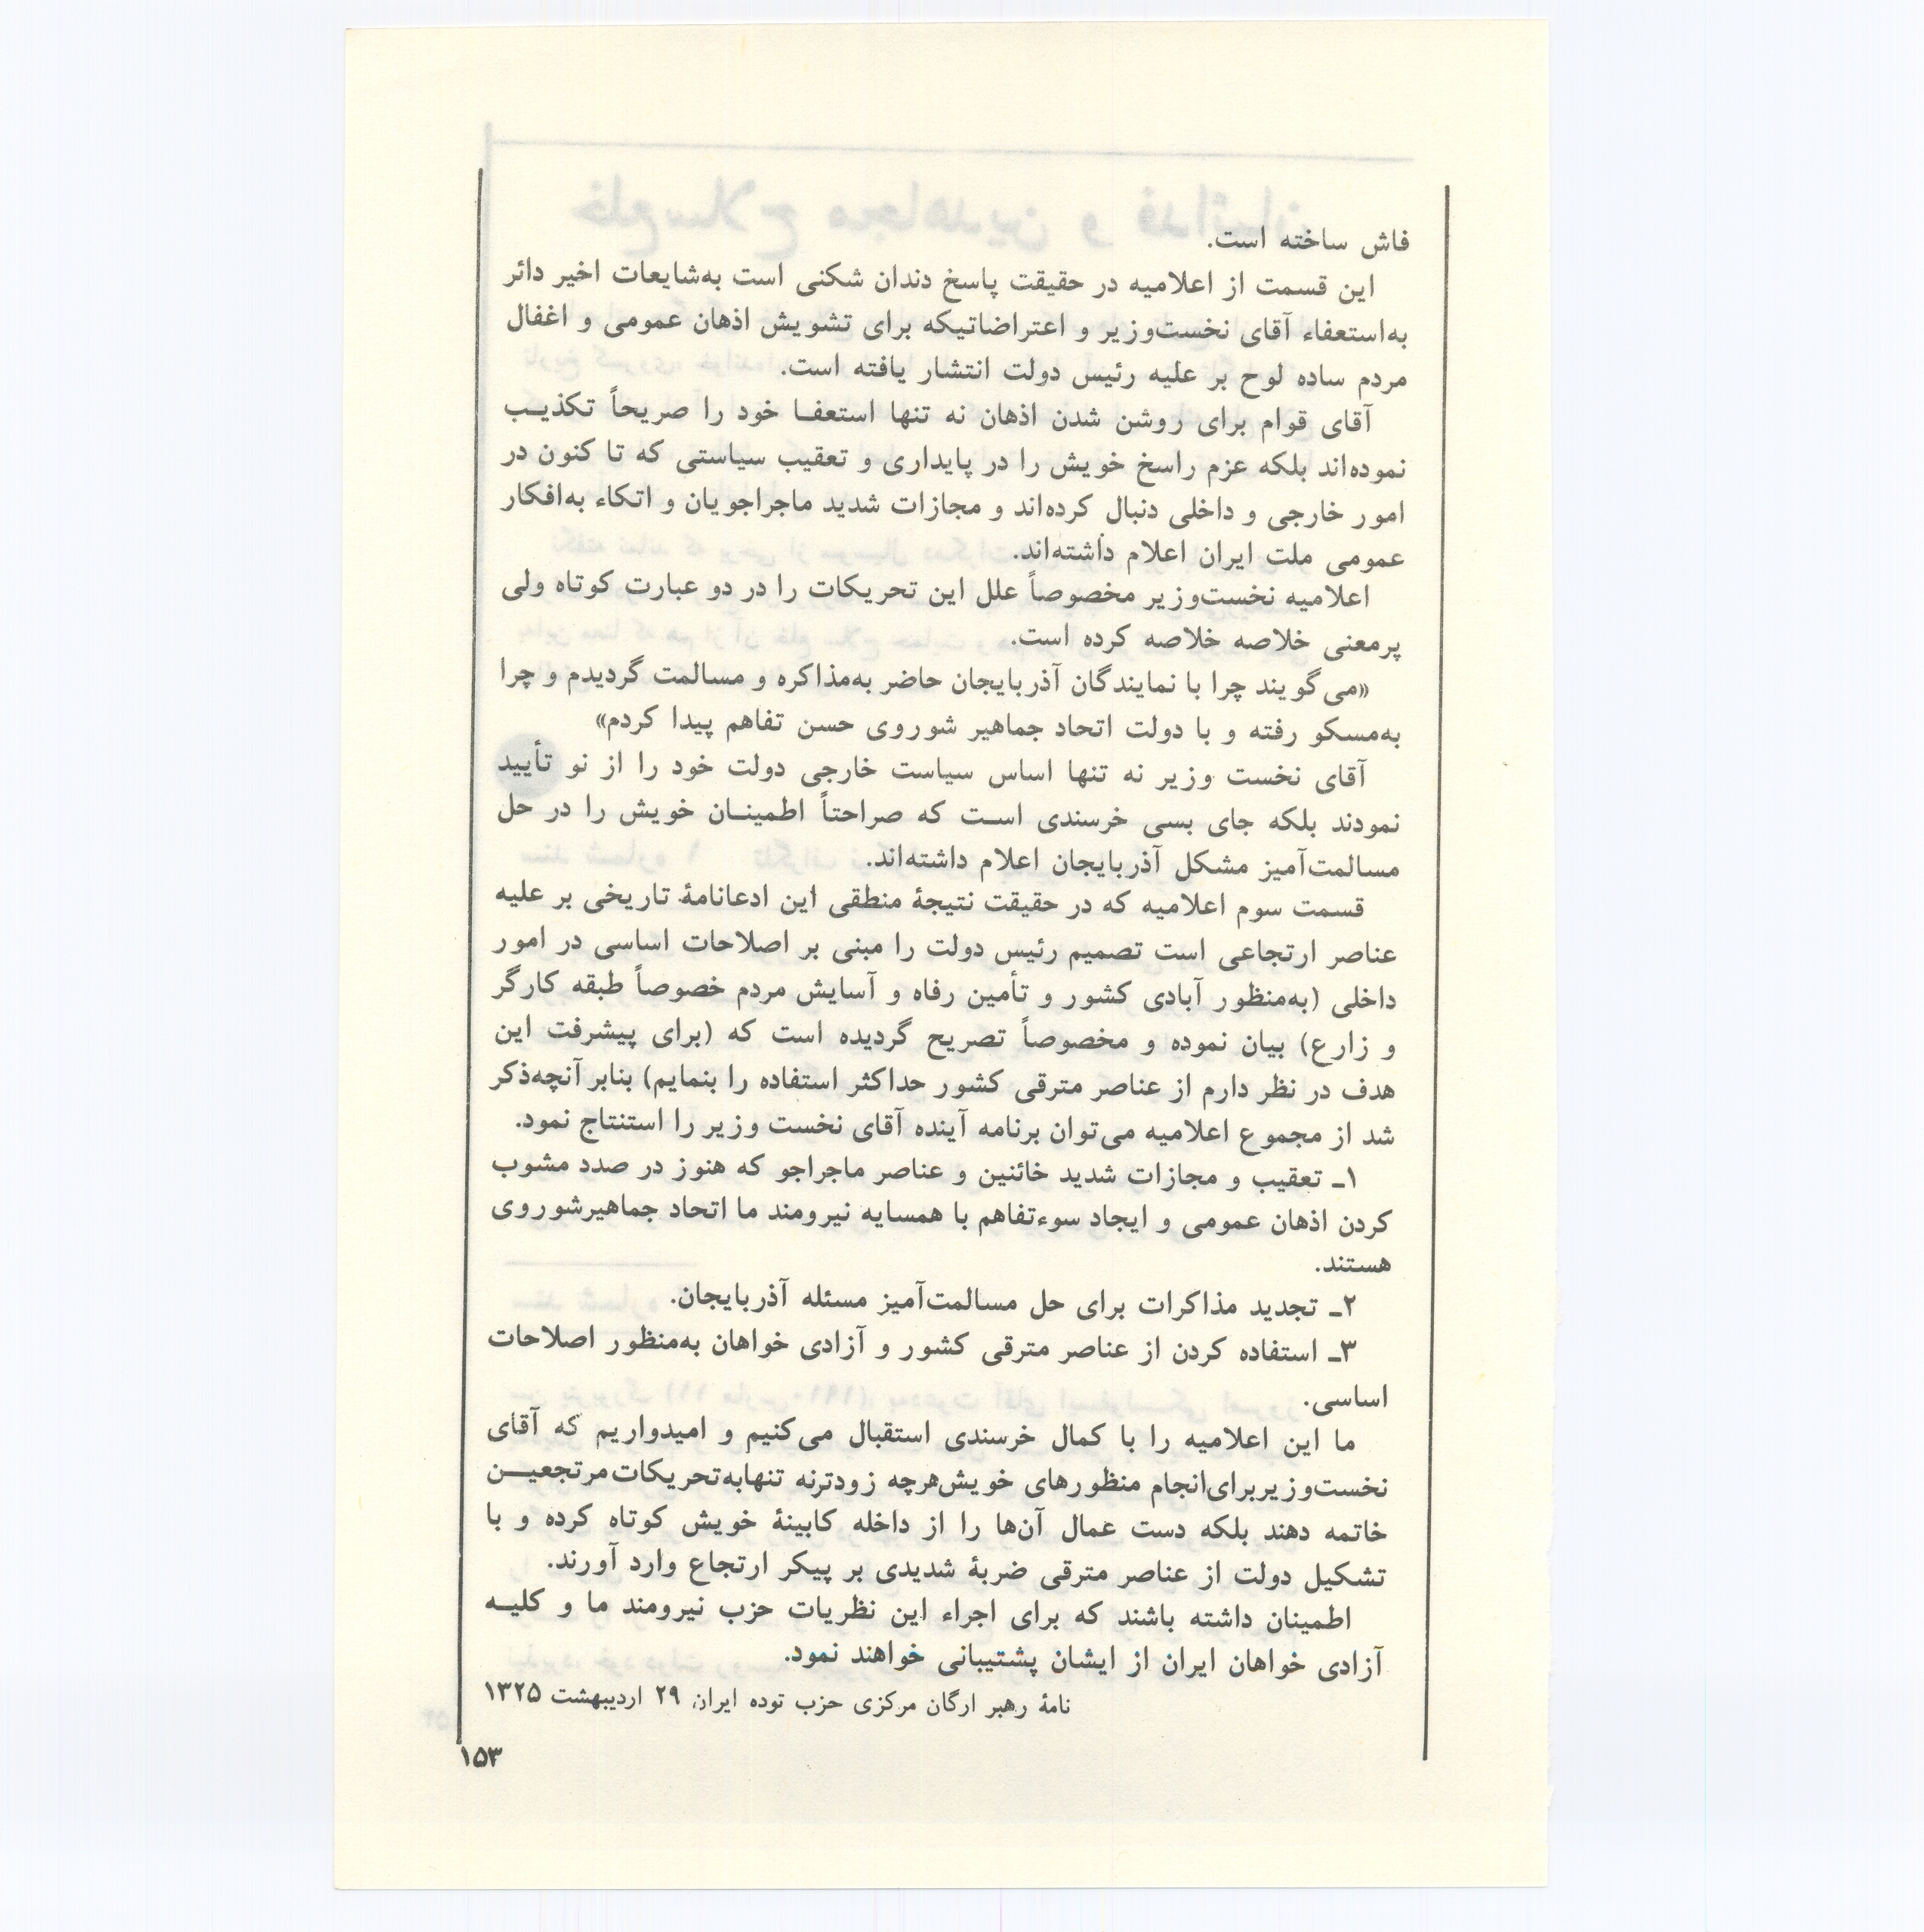 فاش ساخته است.
این قسمت از اعلامیه در حقیقت پاسخ دندان شکنی است به‌شایعات اخیر دائر
به‌استعفاء آقای نخست‌وزیر و اعتراضاتیکه برای تشویش اذهان عمومی و اغفال
مردم ساده لوح بر علیه رئیس دولت انتشار یافته است.
آقای قوام برای روشن شدن اذهان نه تنها استعفـا خود را صریحاً تکذیـب
نموده‌اند بلکه عزم راسخ خویش را در پایداری و تعقیب سیاستی که تا کنون در
امور خارجی و داخلی دنبال کرده‌اند و مجازات شدید ماجراجویان و اتکاء به‌افکار
عمومی ملت ایران اعلام داشته‌اند.
اعلامیه نخست‌وزیر مخصوصاً علل این تحریکات را در دو عبارت کوتاه ولی
پرمعنی خلاصه خلاصه کرده است.
«می‌گویند چرا با نمایندگان آذربایجان حاضر به‌مذاکره و مسالمت گردیدم و چرا
به‌مسکو رفته و با دولت اتحاد جماهیر شوروی حسن تفاهم پیدا کردم»
آقای نخست وزیر نه تنها اساس سیاست خارجی دولت خود را از نو تأیید
نمودند بلکه جای بسی خرسندی اسـت که صراحتاً اطمینـان خویش را در حل
مسالمت‌آمیز مشکل آذربایجان اعلام داشته‌اند.
قسمت سوم اعلامیه که در حقیقت نتیجهٔ منطقی این ادعانامهٔ تاریخی بر علیه
عناصر ارتجاعی است تصمیم رئیس دولت را مبنی بر اصلاحات اساسی در امور
داخلی (به‌منظور آبادی کشور و تأمین رفاه و آسایش مردم خصوصاً طبقه کارگر
و زارع) بیان نموده و مخصوصاً تصریح گردیده است که (برای پیشرفت این
هدف در نظر دارم از عناصر مترقی کشور حداکثر استفاده را بنمایم) بنابر آنچه‌ذکر
شد از مجموع اعلامیه می‌توان برنامه آینده آقای نخست وزیر را استنتاج نمود.
۱ـ تعقیب و مجازات شدید خائنین و عناصر ماجراجو که هنوز در صدد مشوب
کردن اذهان عمومی و ایجاد سوءتفاهم با همسایه نیرومند ما اتحاد جماهیرشوروی
هستند.
۲ـ تجدید مذاکرات برای حل مسالمت‌آمیز مسئله آذربایجان.
۳ـ استفاده کردن از عناصر مترقی کشور و آزادی خواهان به‌منظور اصلاحات
اساسی.
ما این اعلامیه را با کمال خرسندی استقبال می‌کنیم و امیدواریم که آقای
نخست‌وزیربرای‌انجام منظورهای خویش‌هرچه زودترنه تنهابه‌تحریکات‌مرتجعیـن
خاتمه دهند بلکه دست عمال آن‌ها را از داخله کابینهٔ خویش کوتاه کرده و با
تشکیل دولت از عناصر مترقی ضربهٔ شدیدی بر پیکر ارتجاع وارد آورند.
اطمینان داشته باشند که برای اجراء این نظریات حزب نیرومند ما و کلیـه
آزادی خواهان ایران از ایشان پشتیبانی خواهند نمود.
نامهٔ رهبر ارگان مرکزی حزب توده ایران ۲۹ اردیبهشت ۱۳۲۵
۱۵۳